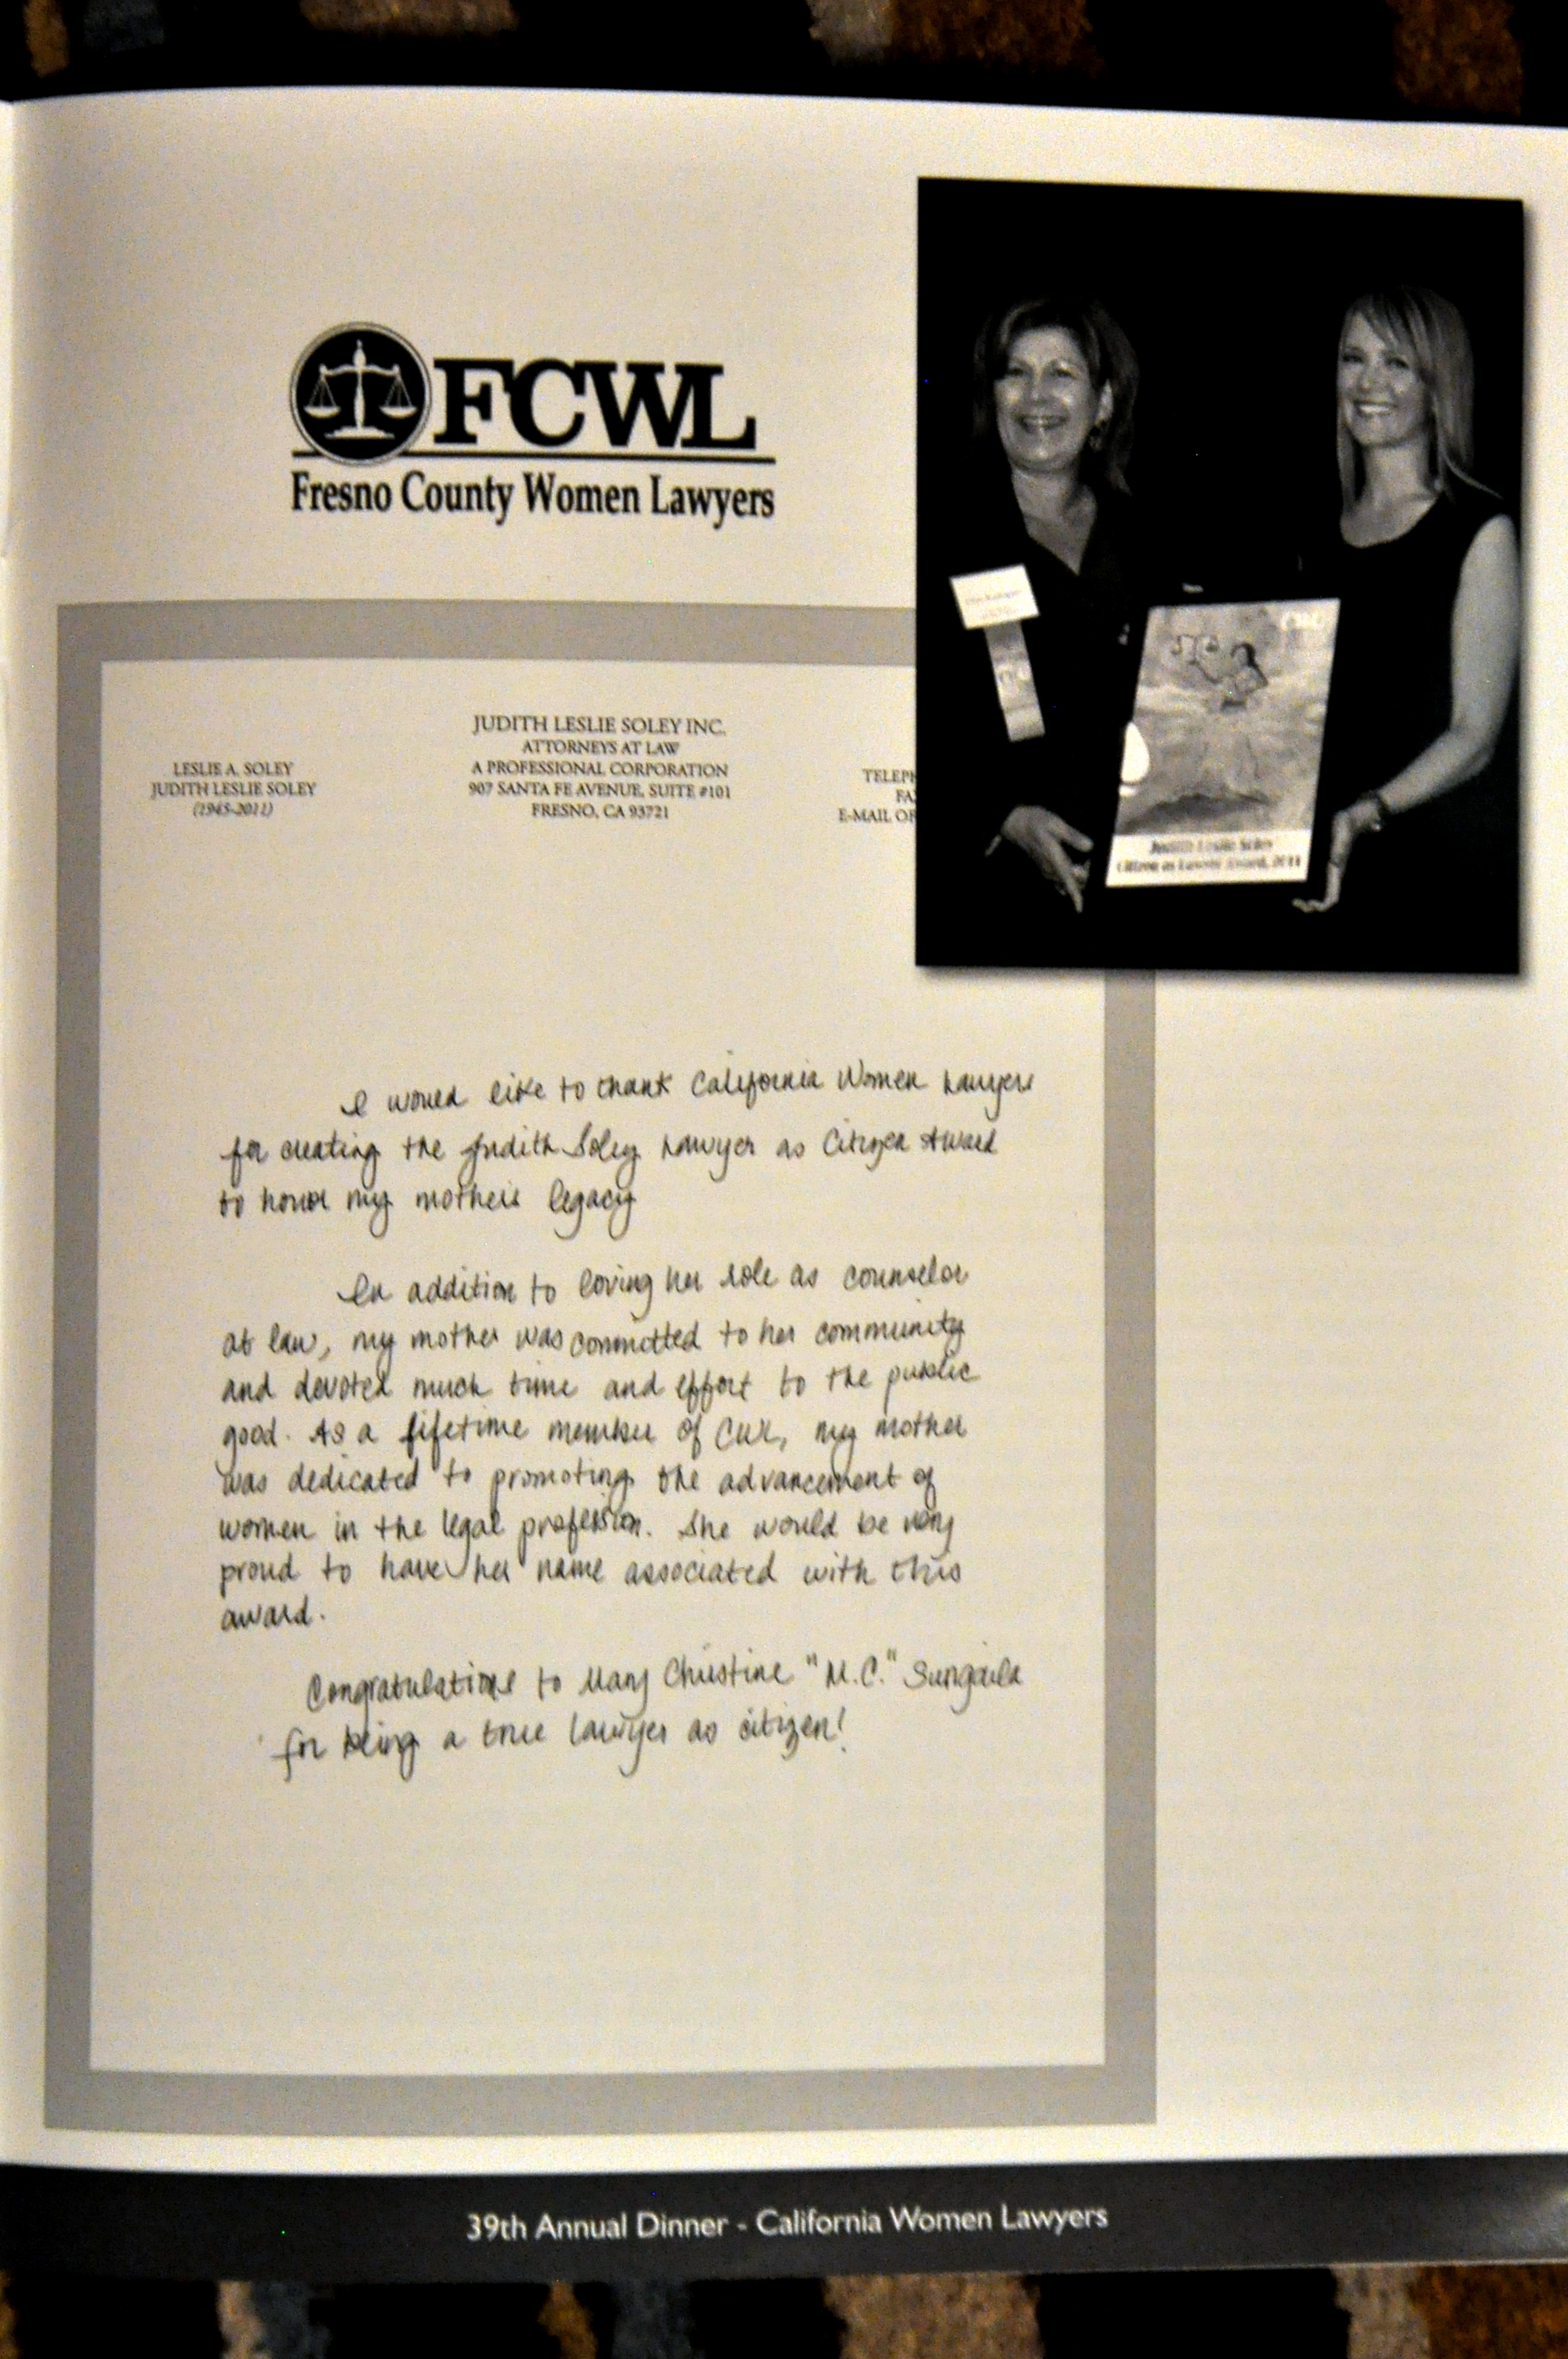 FCWL
Fresno County Women Lawyers
JUDITH LESLIE SOLEY INC.
ATTORNEYS AT LAW
A PROFESSIONAL CORPORATION
907 SANTA FE AVENUE, SUITE #101
FRESNO, CA 93721
LESLIE A. SOLEY
JUDITH LESLIE SOLEY
(1945-2011)
TELEPH
FA
E-MAIL OF
Judith Leslie Soley
Citizen as Lawyer Award, 2011
I would like to thank California Women Lawyers
for creating the Judith Soley Lawyer as Citizen Award
to honor my mother's legacy
In addition to loving her role as counselor
at law, my mother was committed to her community
and devoted much time and effort to the public
good. As a lifetime member of CWL, my mother
was dedicated to promoting the advancement of
women in the legal profession. She would be very
proud to have her name associated with this
award.
Congratulations to Mary Christine "M.C." Sungaila
for being a true lawyer as citizen!
39th Annual Dinner - California Women Lawyers